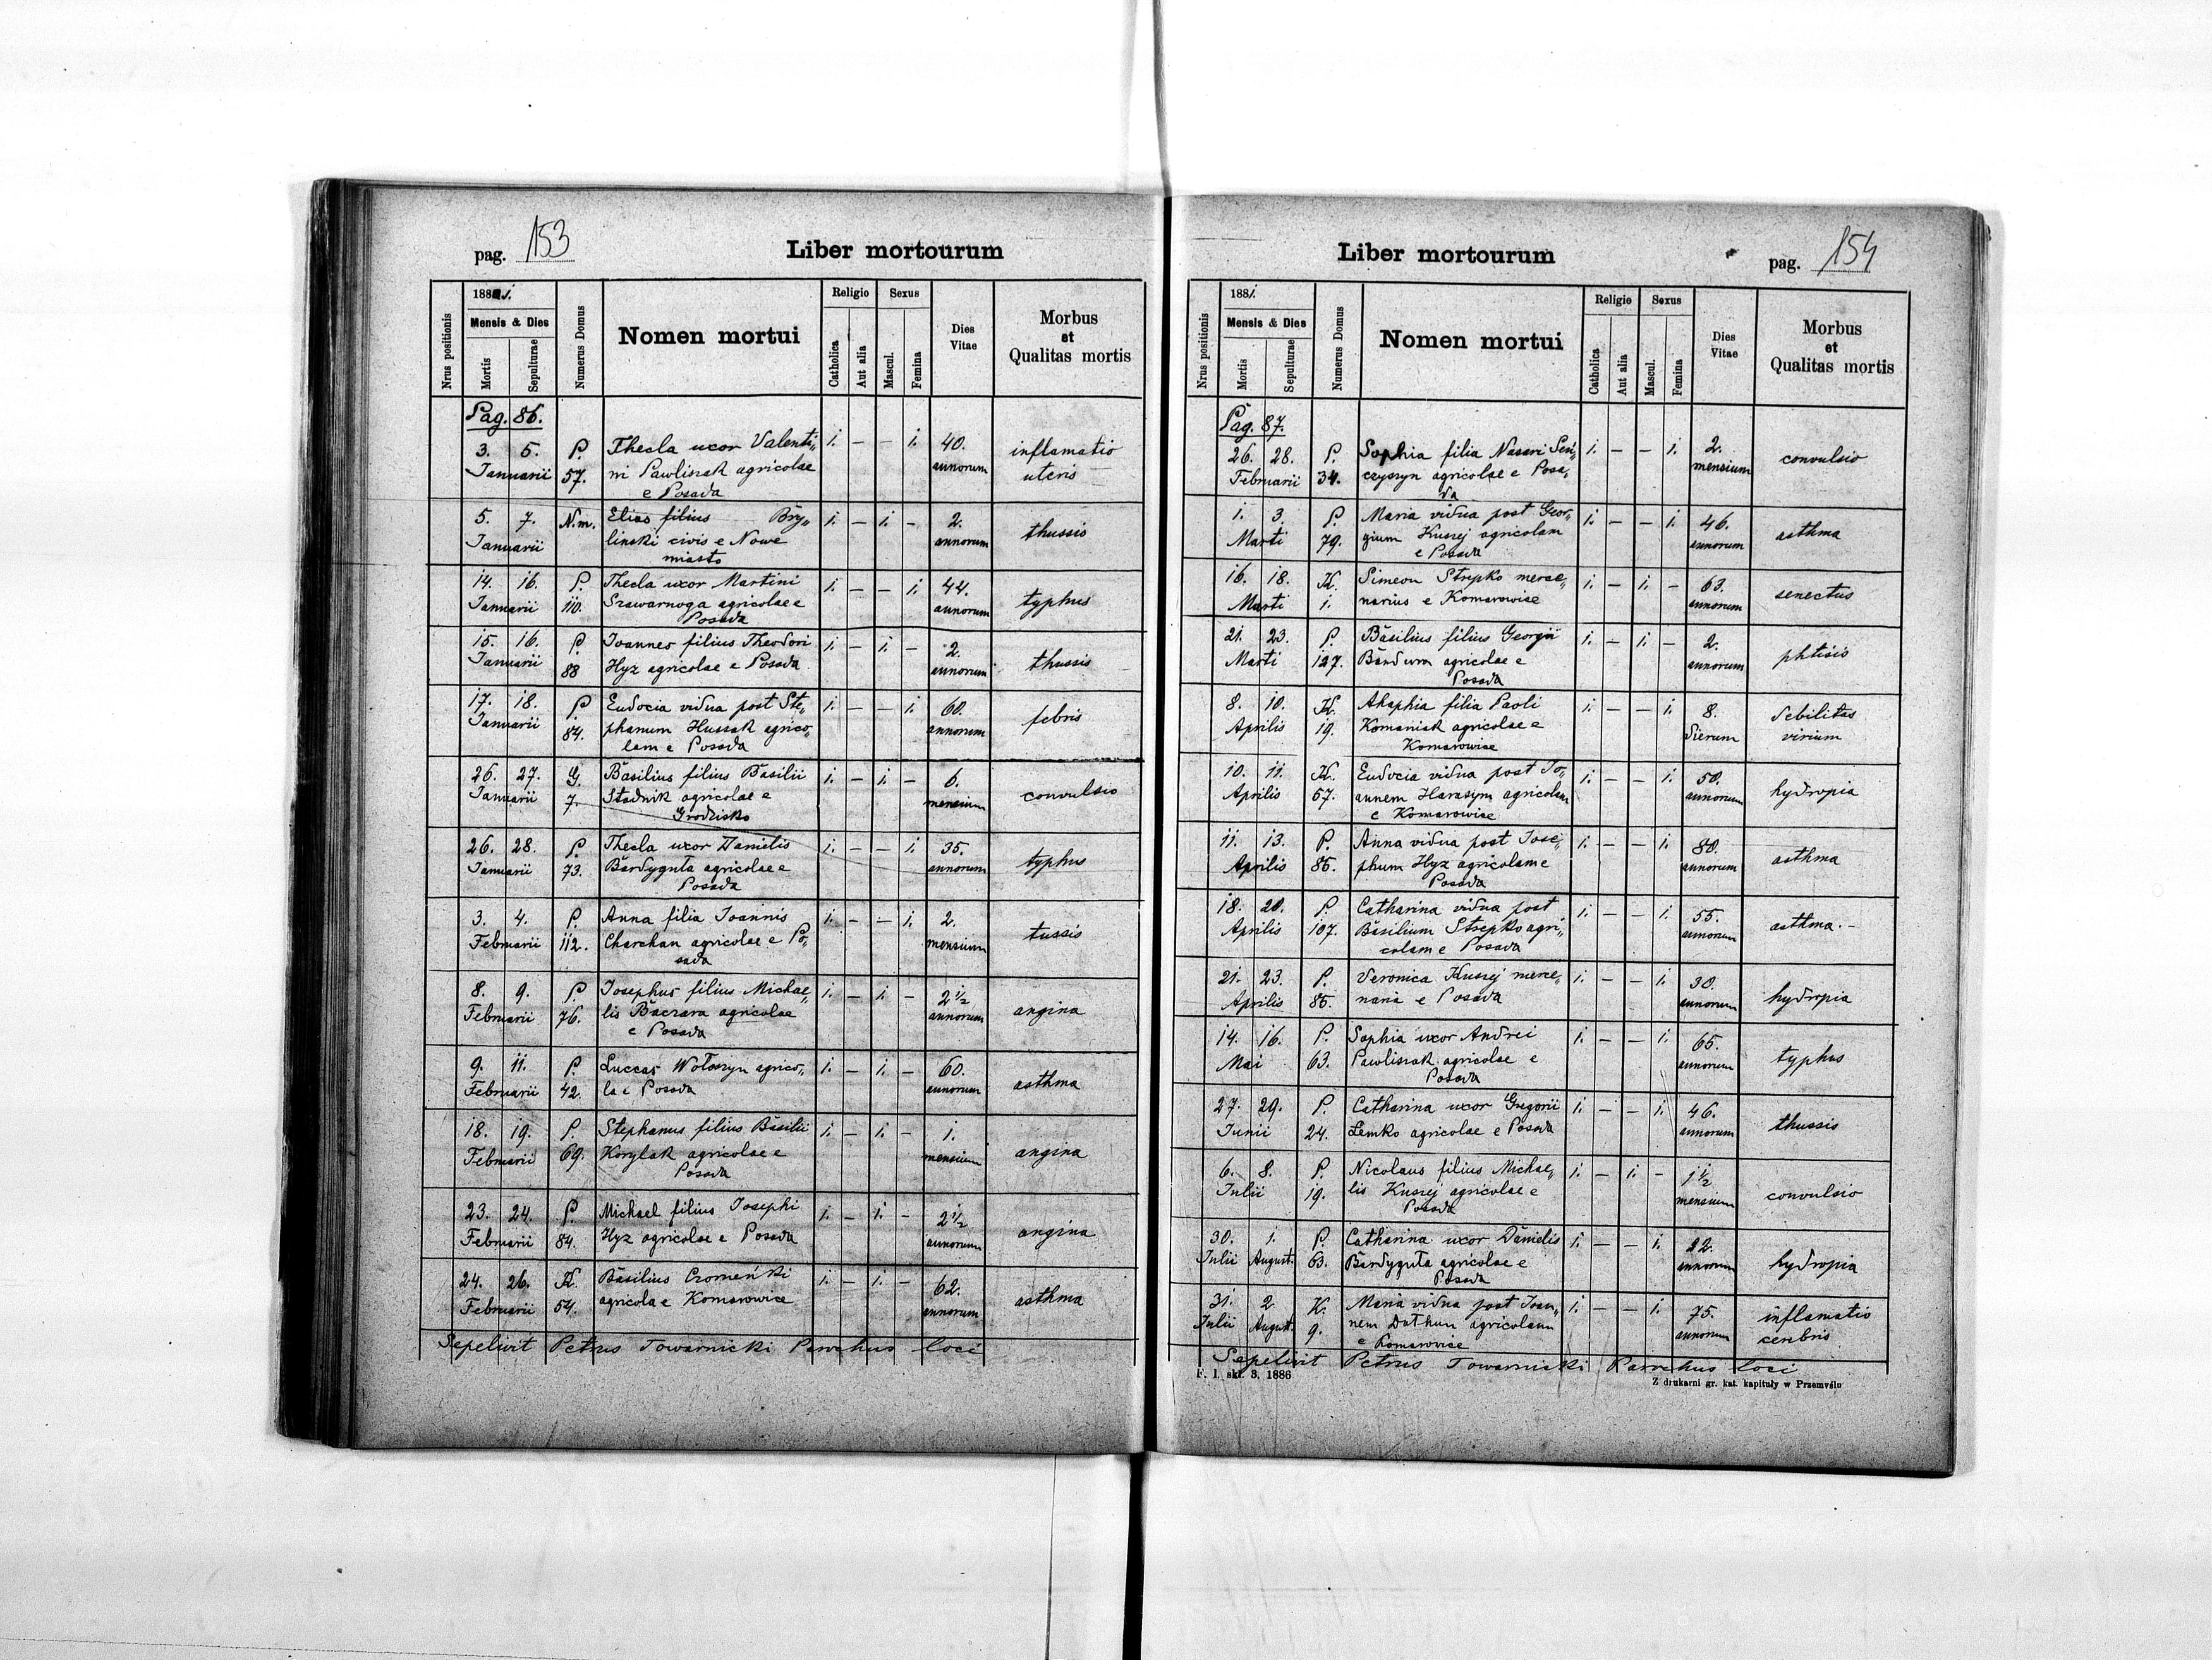 pag. 153
Liber mortourum
Nrus positionis
1881.
Mensis & Dies
Mortis
Sepulturae
Numerus Domus
Nomen mortui
Religio
Catholica
Aut alia
Sexus
Mascul.
Femina
Dies Vitae
Morbus et Qualitas mortis
Pag. 86.
3. 5. P. Thecla uxor Valenti„ 1. — — 1. 40. inflamatio
Januarii 57. ni Pawliszak agricolae annorum uteris
e Posada
5. 7. N.m. Elias filius Bry„ 1. — 1. — 2. thussis
Januarii linski civis e Nowe annorum
miasto
14. 16. P. Thecla uxor Martini 1. — — 1. 44. typhus
Januarii 110. Szawarnoga agricolae e annorum
Posada
15. 16. P. Joannes filius Theodori 1. — 1. — 2. thussis
Januarii 88 Hyz agricolae e Posada annorum
17. 18. P. Eudocia vidua post Ste„ 1. — — 1. 60. febris
Januarii 84. phanum Hussak agrico„ annorum
lam e Posada
26. 27. G. Basilius filius Basilii 1. — 1. — 6. convulsio
Januarii 7. Stadnik agricolae e mensium
Grodzisko
26. 28. P. Thecla uxor Danielis 1. — — 1. 35. typhus
Januarii 73. Bardyguta agricolae e annorum
Posada
3. 4. P. Anna filia Joannis 1. — — 1. 2. tussis
Februarii 112. Charchan agricolae e Po„ mensium
sada
8. 9. P. Josephus filius Michae„ 1. — 1. — 2 1/2 angina
Februarii 76. lis Baczara agricolae annorum
e Posada
9. 11. P. Luccas Wołoszyn agrico„ 1. — 1. — 60. asthma
Februarii 42. la e Posada annorum
18. 19. P. Stephanus filius Basilii 1. — 1. — 1. angina
Februarii 69. Korylak agricolae e mensium
Posada
23. 24. P. Michael filius Josephi 1. — 1. — 2 1/2 angina
Februarii 84. Hyz agricolae e Posada annorum
24. 26. K. Basilius Cromeński 1. — 1. — 62. asthma
Februarii 54. agricola e Komarowice annorum
Sepelivit Petrus Towarnicki Parochus loci
Liber mortourum
pag. 154
Nrus positionis
1881.
Mensis & Dies
Mortis
Sepulturae
Numerus Domus
Nomen mortui
Religio
Catholica
Aut alia
Sexus
Mascul.
Femina
Dies Vitae
Morbus et Qualitas mortis
Pag. 87.
26. 28. P. Sophia filia Nasari Sen„ 1. — — 1. 2. convulsio
Februarii 34. czyszyn agricolae e Posa„ mensium
da
1. 3. P. Maria vidua post Geor„ 1. — — 1. 46. asthma
Marti 79. gium Kuszej agricolam annorum
e Posada
16. 18. K. Simeon Strepko merce„ 1. — 1. — 63. senectus
Marti 1. narius e Komarowice annorum
21. 23. P. Basilius filius Georgii 1. — 1. — 2. phtisis
Marti 127. Bandura agricolae e annorum
Posada
8. 10. K. Ahaphia filia Paoli 1. — — 1. 8. debilitas
Aprilis 19. Komaniak agricolae e dierum virium
Komarowice
10. 11. K. Eudocia vidua post Jo„ 1. — — 1. 50. hydropia
Aprilis 67. annem Harasym agricolam annorum
e Komarowice
11. 13. P. Anna vidua post Jose„ 1. — — 1. 80. asthma
Aprilis 85. phum Hyz agricolam e annorum
Posada
18. 20. P. Catharina vidua post 1. — — 1. 55. asthma. –
Aprilis 107. Basilium Strepko agri„ annorum
colam e Posada
21. 23. P. Veronica Kuszej merce„ 1. — — 1. 30. hydropia
Aprilis 85. naria e Posada annorum
14. 16. P. Sophia uxor Andrei 1. — — 1. 65. typhus
Mai 63. Pawliszak agricolae e annorum
Posada
27. 29. P. Catharina uxor Gregorii 1. — — 1. 46. thussis
Junii 24. Lemko agricolae e Posada annorum
6. 8. P. Nicolaus filius Michae„ 1. — 1. — 1 1/2 convulsio
Julii 19. lis Kuszej agricolae e mensium
Posada
30. 1. P. Catharina uxor Danielis 1. — — 1. 22. hydropia
Julii August. 63. Bardyguta agricolae e annorum
Posada
31. 2. K. Maria vidua post Joan„ 1. — — 1. 75. inflamatio
Julii August. 9. nem Dathun agricolam annorum cerebris
e Komarowice
Sepelivit Petrus Towarnicki Parochus loci
F. 1. skł. 3. 1886
Z drukarni gr. kat. kapituły w Przemyślu